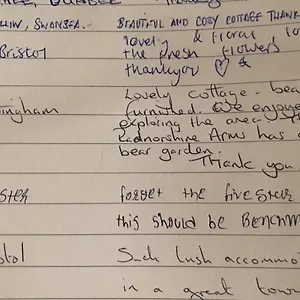 SWANSEA. BEAUTIFUL AND COSY COTTAGE THANK
lovely & floral
Bristol the fresh flowers
thankyou ♡ &
Lovely cottage. bea
ingham furnished. We enjoye
exploring the area. Th
Radnorshire Arms has a
bear garden.
Thank you
ster forget the five star
this should be BENCHM
stol Such lush accommo
in a great town